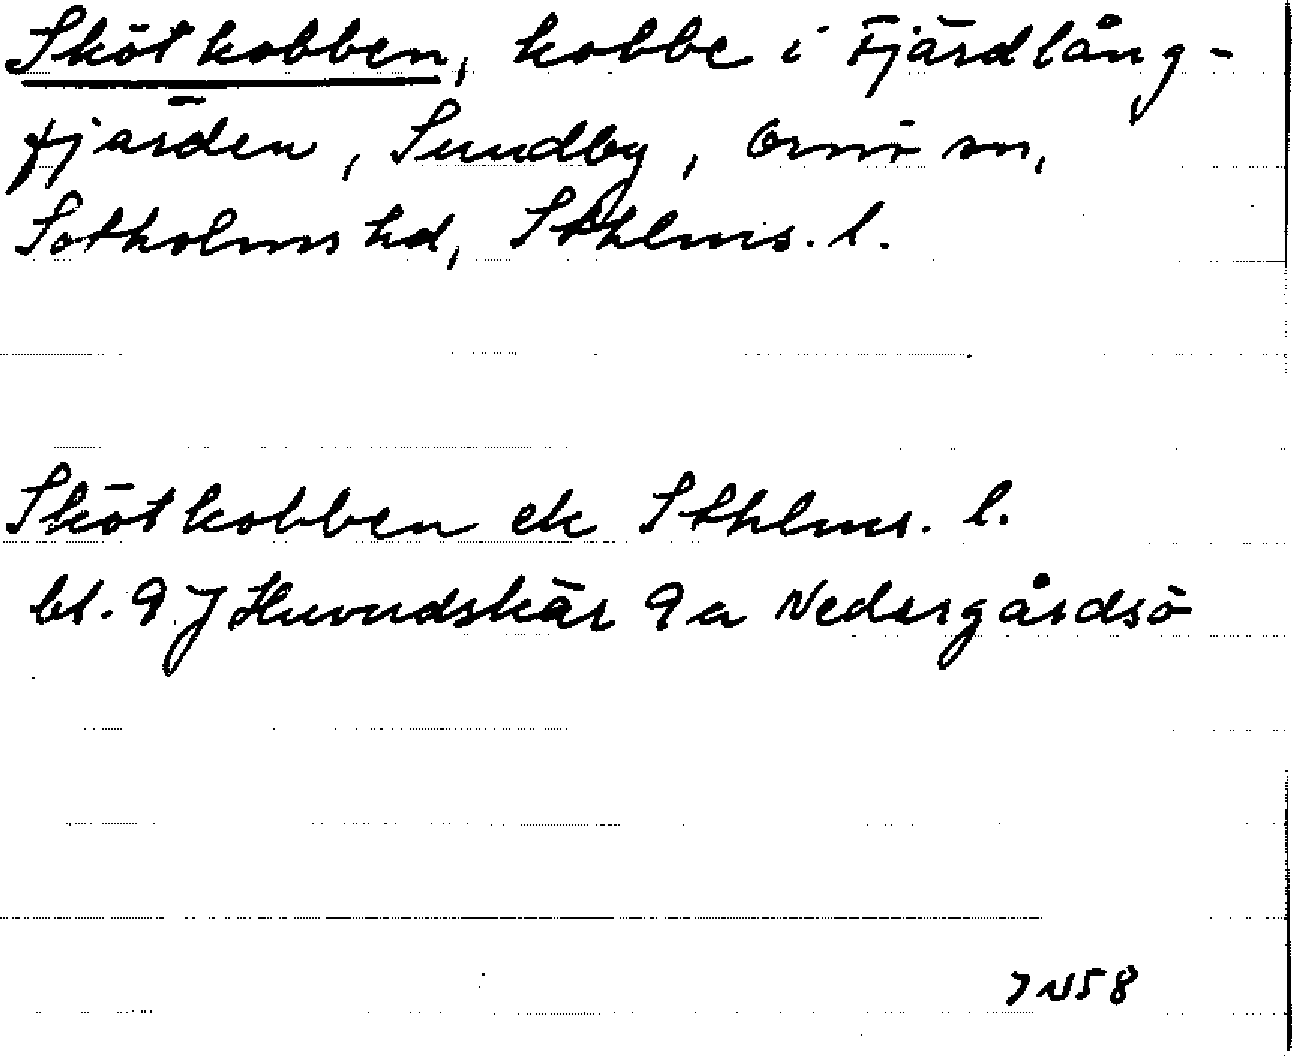 Skötkobben, kobbe i Fjärdlång-
fjärden, Sundby, Ornö sn,
Sotholms hd, Sthlms. l.
Skötkobben ek Sthlms. l.
bl. 9 J Huvudskär 9 a Nedergårdsö
JN58